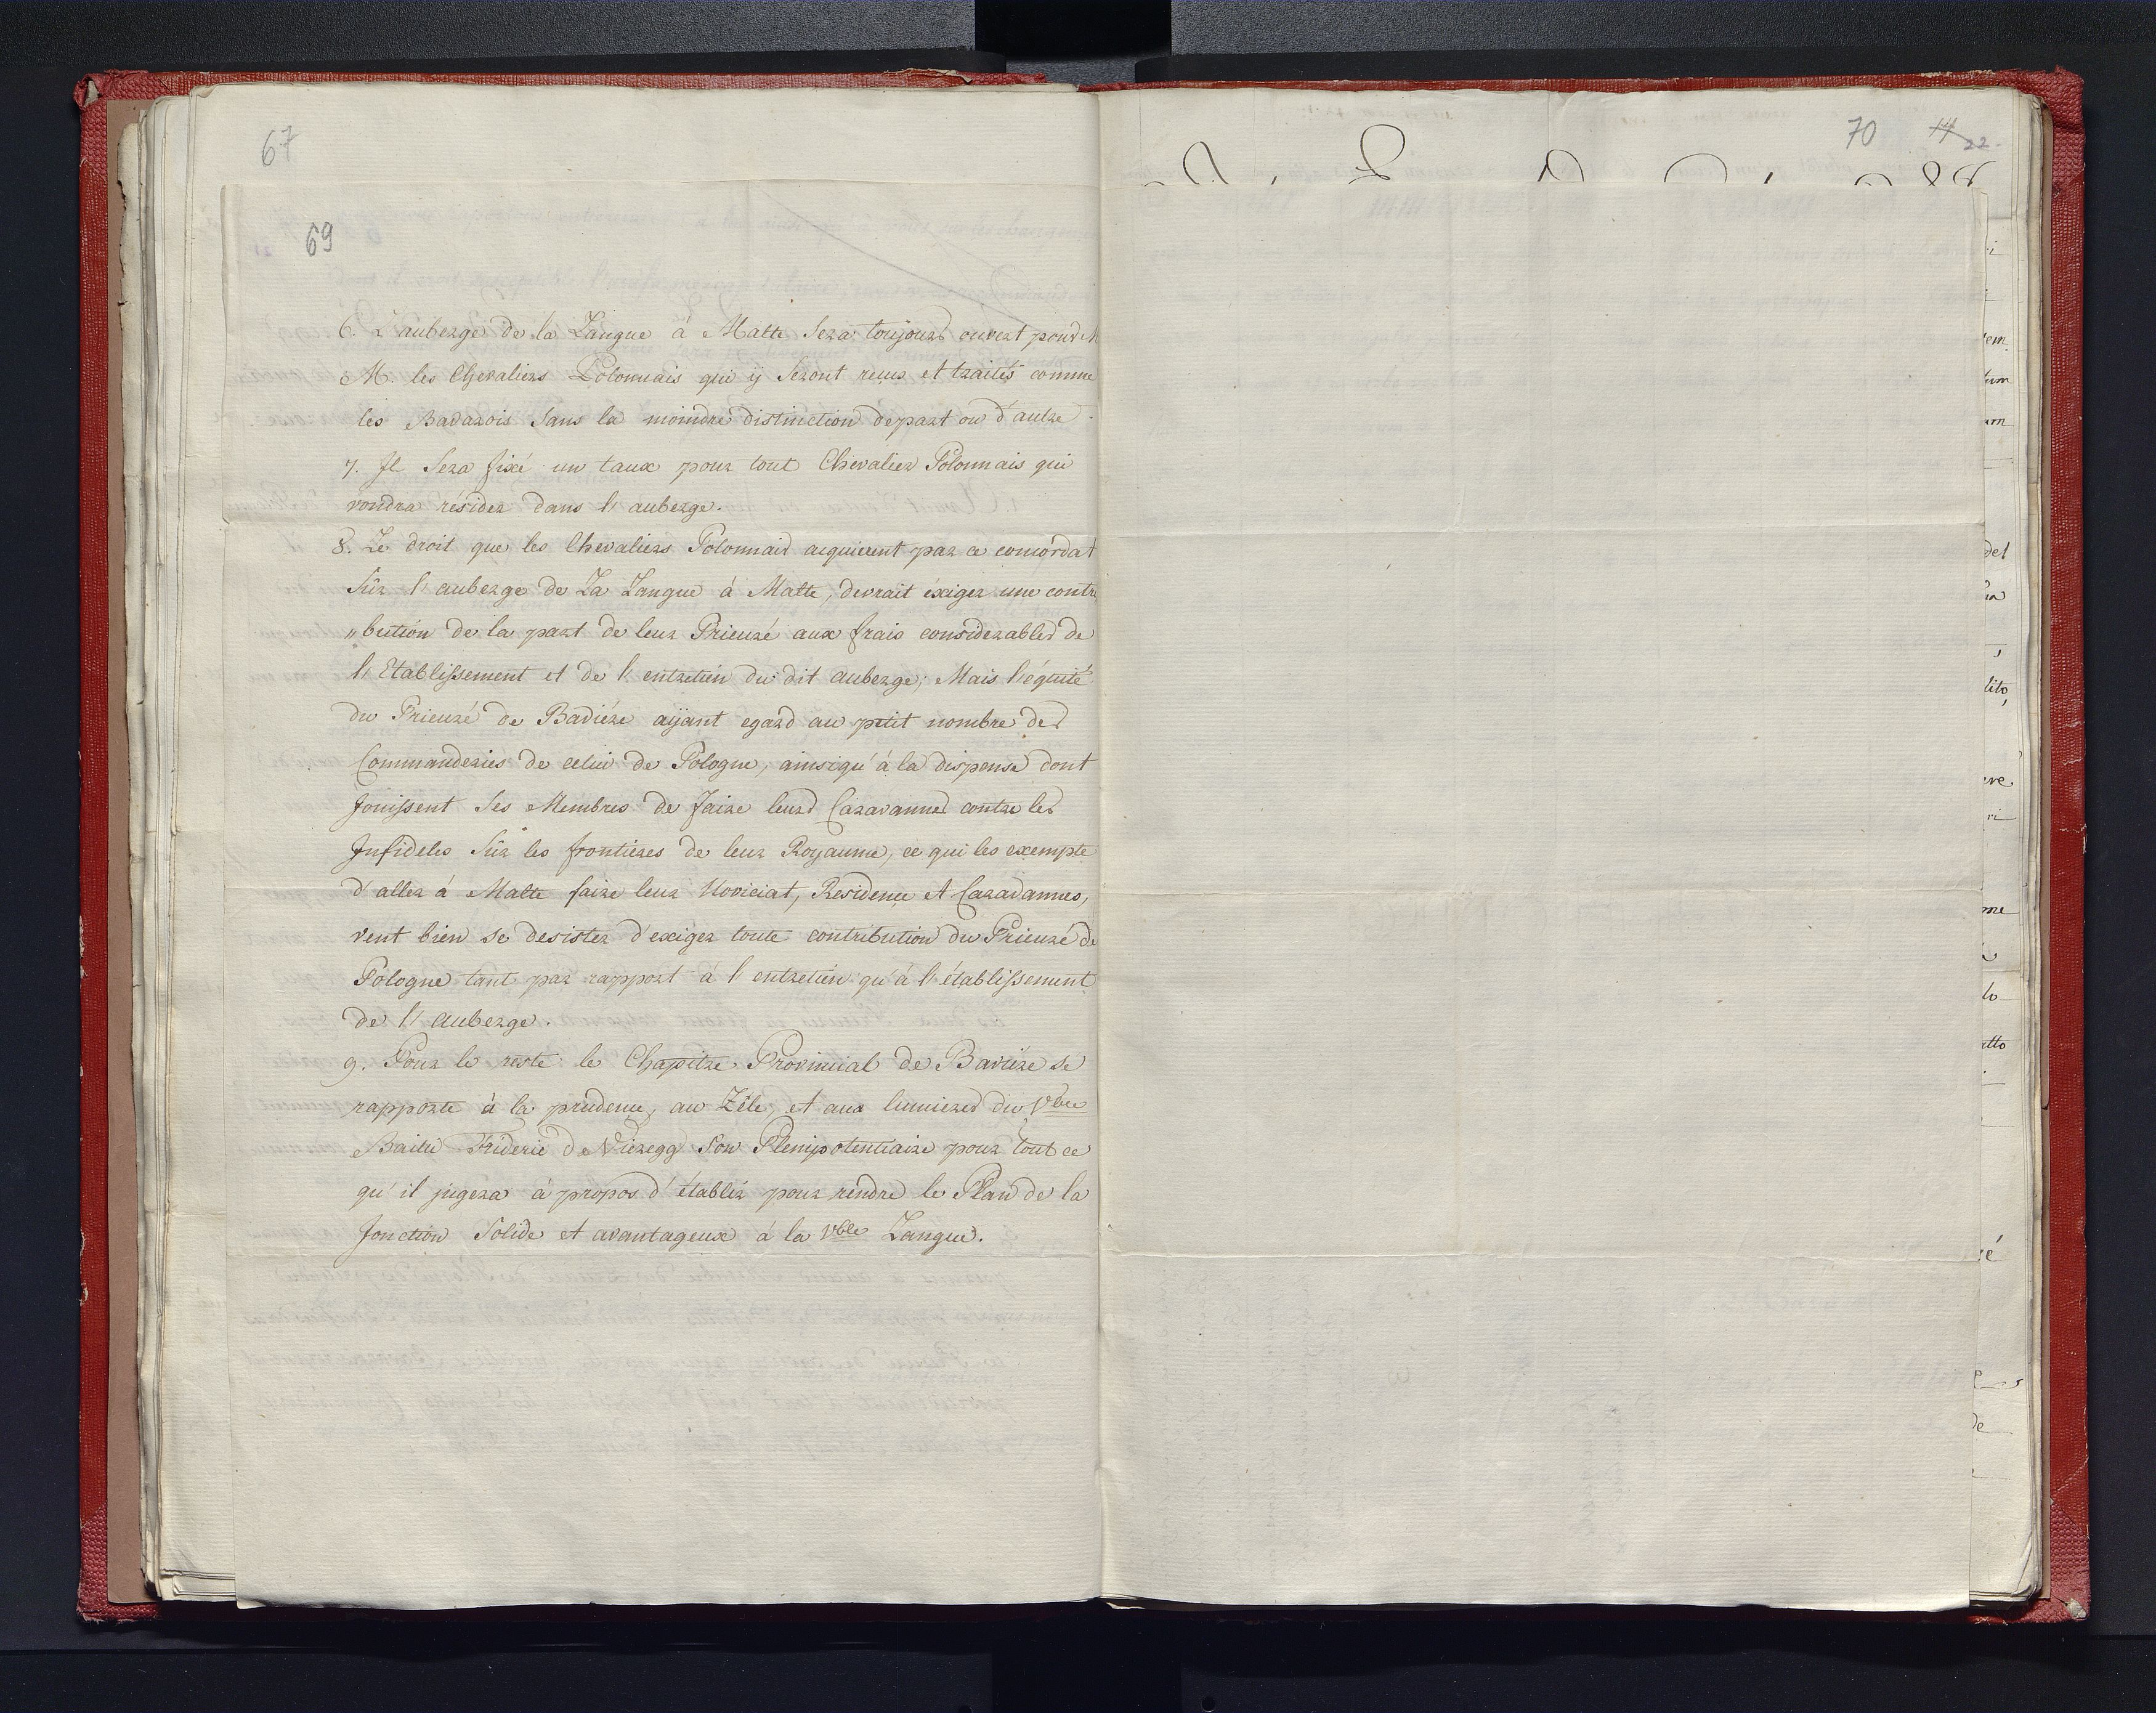 67
69
6. L'auberge de la Langue à Malte Sera toujours ouvert pour
M. les Chevaliers Polonnais qui ÿ Seront reçus et traités comme
les Bavarois Sans la moindre distinction de part ou d'autre.
7. Il Sera fixé un taux pour tout Chevalier Polonnais qui
voudra résider dans l'auberge.
8. Le droit que les Chevaliers Polonnais acquierent par ce concordat
Sûr l'auberge de La Langue à Malte, devrait éxiger une contri
"bution de la part de leur Prieuré aux frais considerables de
l'Etablissement et de l'entretien du dit auberge; Mais l'équité
du Prieuré de Baviére aÿant egard au petit nombre des
Commanderies de celui de Pologne, ainsi qu'à la dispense dont
Jouissent Ses Membres de faire leurs Caravannes contre les
Infideles Sûr les frontieres de leur Royaume, ce qui les exempte
d'aller à Malte faire leur Noviciat, Residence et Caravannes,
veut bien se desister d'exiger toute contribution du Prieuré de
Pologne tant par rapport à l'entretien qu'à l'établissement
de l'auberge.
9. Pour le reste le Chapitre Provincial de Baviére se
rapporte à la prudence, au Zêle, et aux lumieres du Vble
Bailli Frideric de Vieregg Son Plenipotentiaire pour tout ce
qu'il jugera à propos d'établir pour rendre le Plan de la
Jonction Solide et avantageuse à la vble Langue.
70
14
22.
del
lito,
me
lo
atto
de